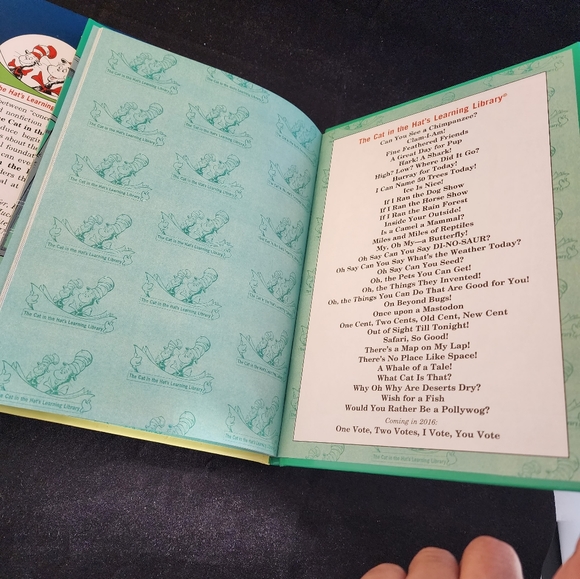 he Hat's Learning
between
nonfiction
Cat in the
s about the
can eve
The Cat in the Hat's Learning Library
The Cat in the Hat's Learning Library®
Can You See a Chimpanzee?
Clam-I-Am!
Fine Feathered Friends
A Great Day for Pup
Hark! A Shark!
High? Low? Where Did It Go?
Hurray for Today!
I Can Name 50 Trees Today!
Ice Is Nice!
If I Ran the Dog Show
If I Ran the Horse Show
If I Ran the Rain Forest
Inside Your Outside!
Is a Camel a Mammal?
Miles and Miles of Reptiles
My, Oh My—a Butterfly!
Oh Say Can You Say DI-NO-SAUR?
Oh Say Can You Say What's the Weather Today?
Oh Say Can You Seed?
Oh, the Pets You Can Get!
Oh, the Things They Invented!
Oh, the Things You Can Do That Are Good for You!
On Beyond Bugs!
Once upon a Mastodon
One Cent, Two Cents, Old Cent, New Cent
Out of Sight Till Tonight!
Safari, So Good!
There's a Map on My Lap!
There's No Place Like Space!
A Whale of a Tale!
What Cat Is That?
Why Oh Why Are Deserts Dry?
Wish for a Fish
Would You Rather Be a Pollywog?
Coming in 2016:
One Vote, Two Votes, I Vote, You Vote